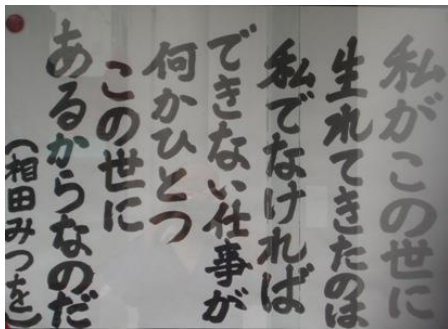 私がこの世に
生れてきたのは
私でなければ
できない仕事が
何かひとつ
この世に
あるからなのだ
(相田みつを)